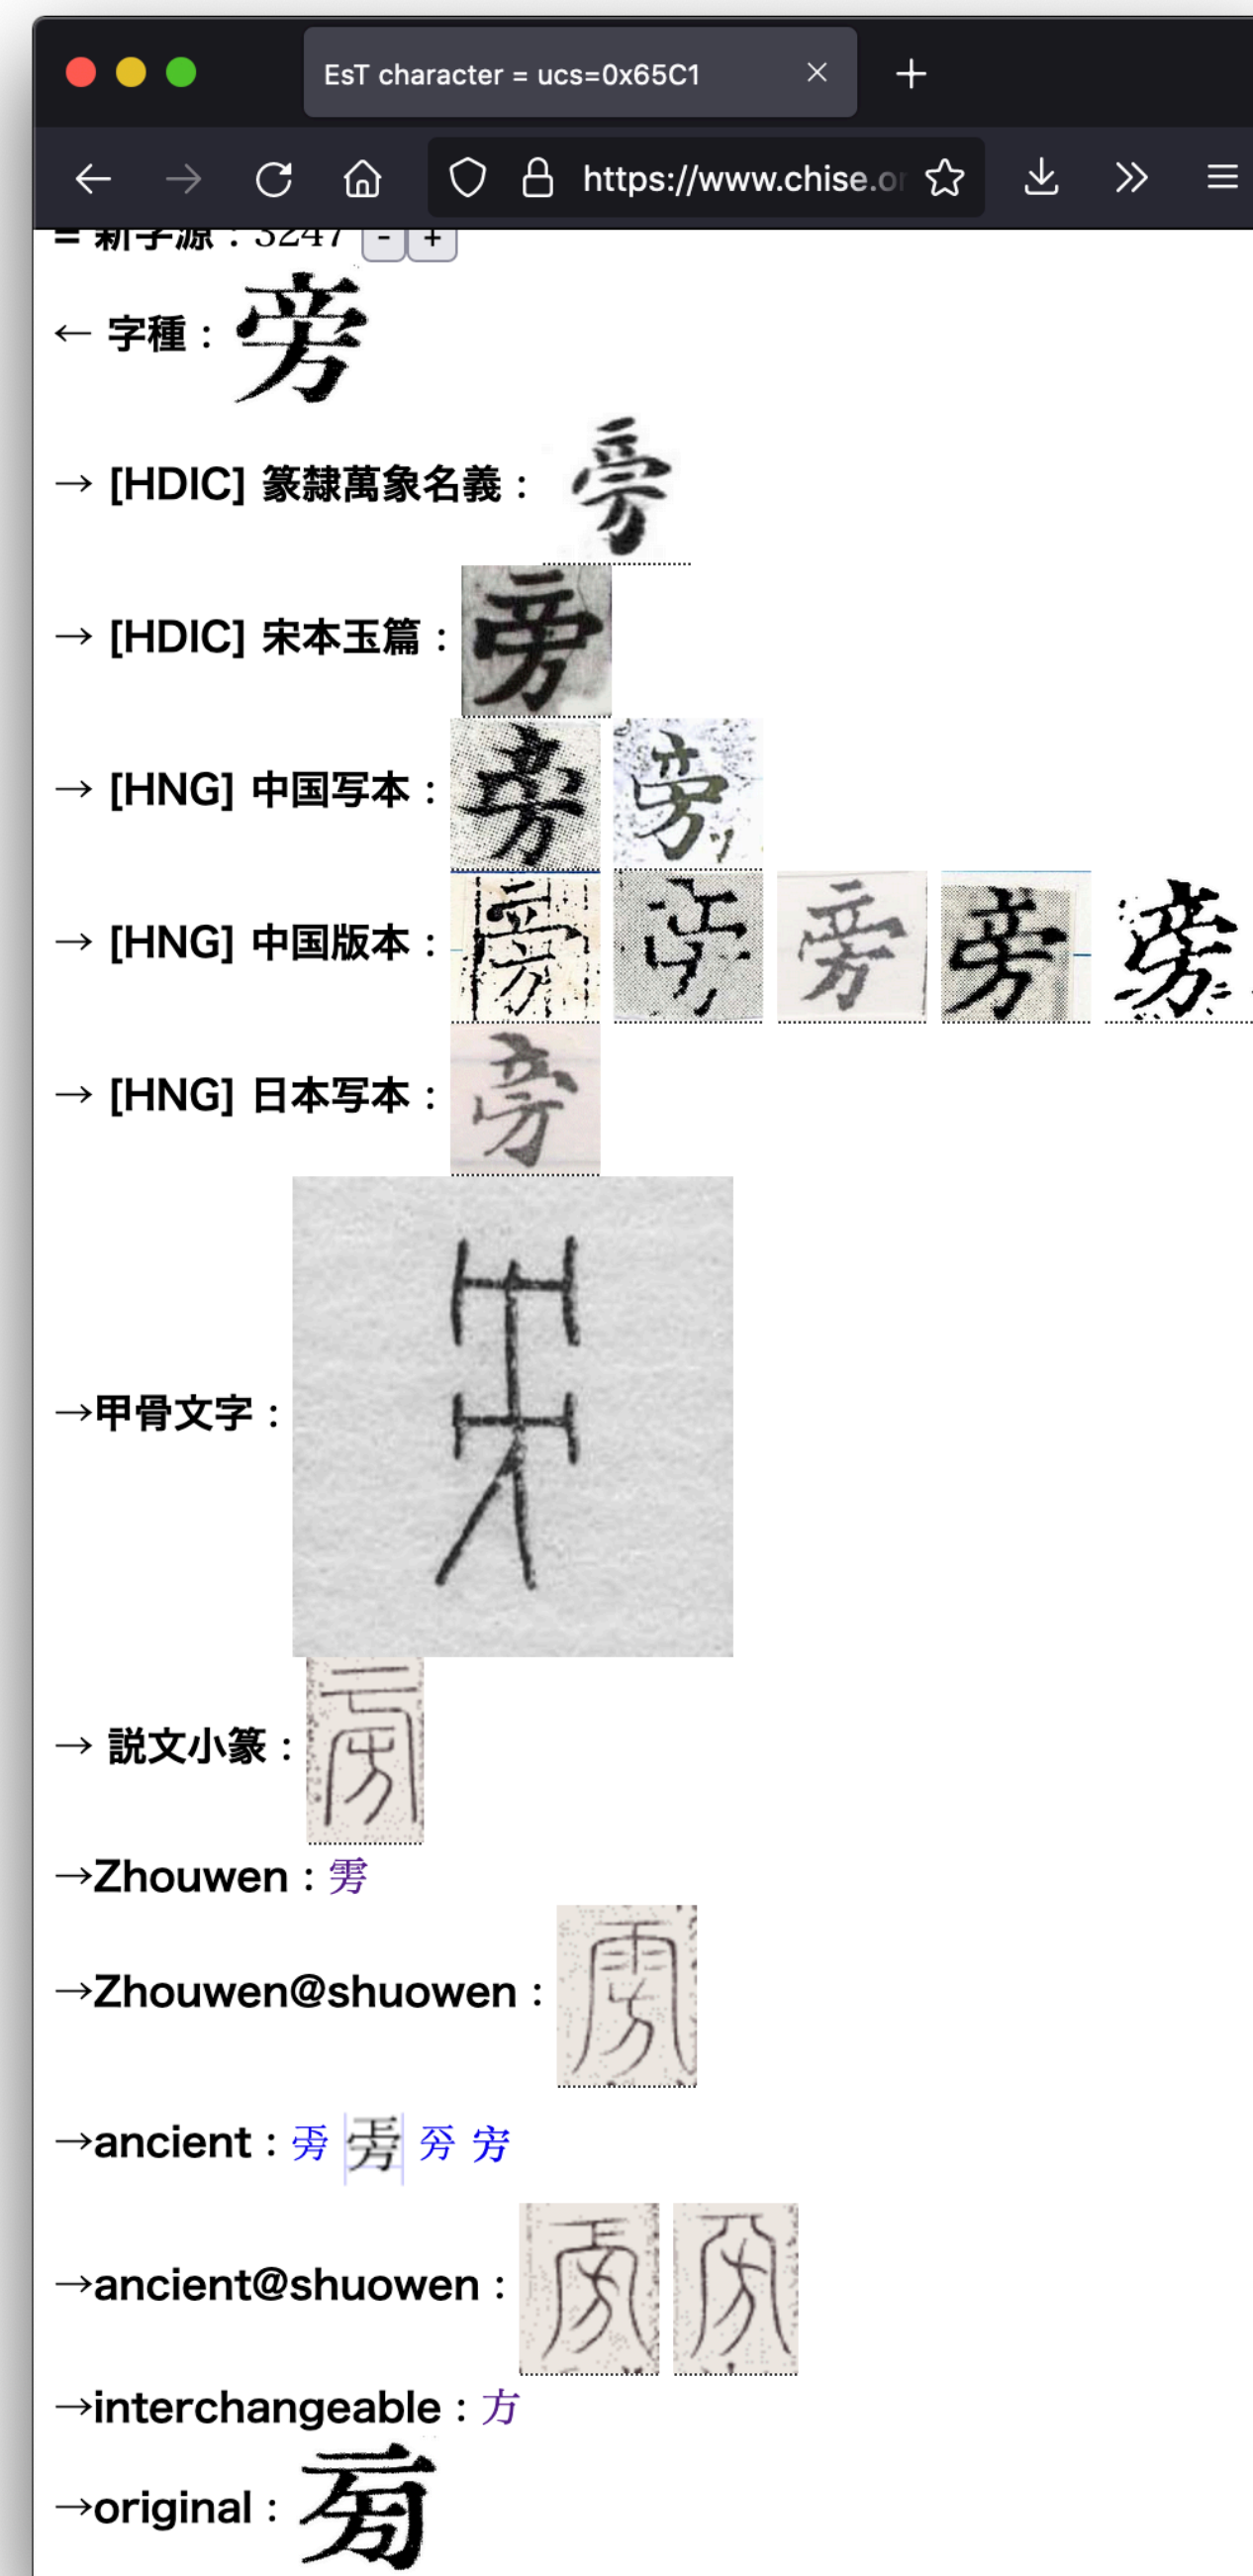 EsT character = ucs=0x65C1
https://www.chise.or
= 新字源 : 3247 - +
← 字種 : 旁
→ [HDIC] 篆隷萬象名義 : 旁
→ [HDIC] 宋本玉篇 : 旁
→ [HNG] 中国写本 : 旁 旁
→ [HNG] 中国版本 : 旁 旁 旁 旁 旁
→ [HNG] 日本写本 : 旁
→甲骨文字 :
→ 説文小篆 :
→Zhouwen : 雱
→Zhouwen@shuowen :
→ancient :
→ancient@shuowen :
→interchangeable : 方
→original :